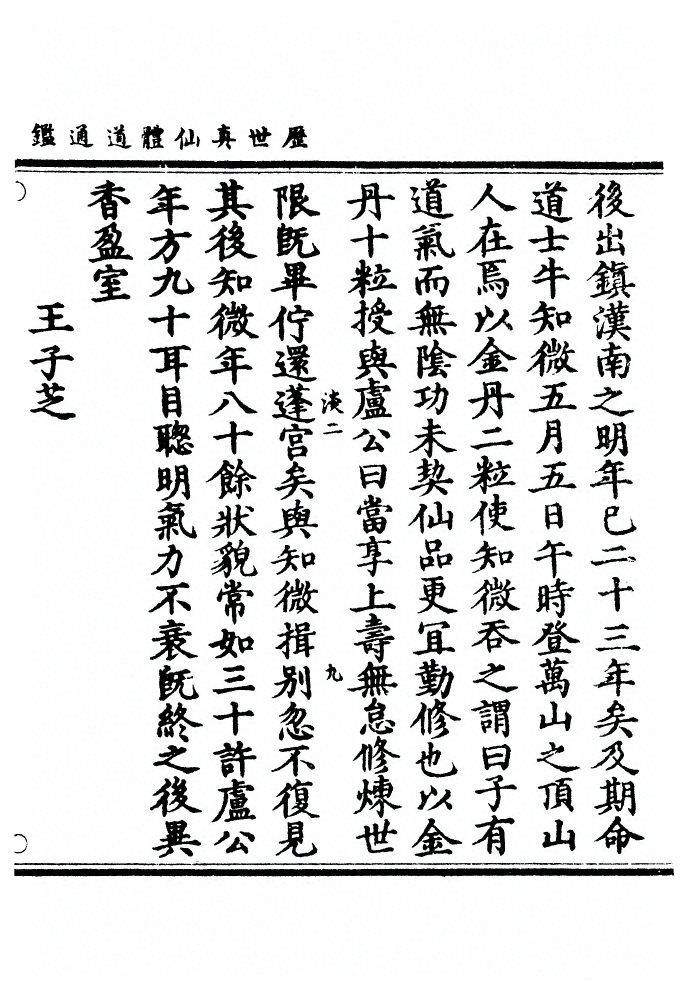 歷世真仙體道通鑑
後出鎮漢南之明年已二十三年矣及期命
道士牛知微五月五日午時登萬山之頂山
人在焉以金丹二粒使知微吞之謂曰子有
道氣而無陰功未契仙品更宜勤修也以金
丹十粒授與盧公曰當享上壽無怠修煉世
演二 九
限既畢佇還蓬宮矣與知微揖別忽不復見
其後知微年八十餘狀貌常如三十許盧公
年方九十耳目聰明氣力不衰既終之後異
香盈室
王子芝